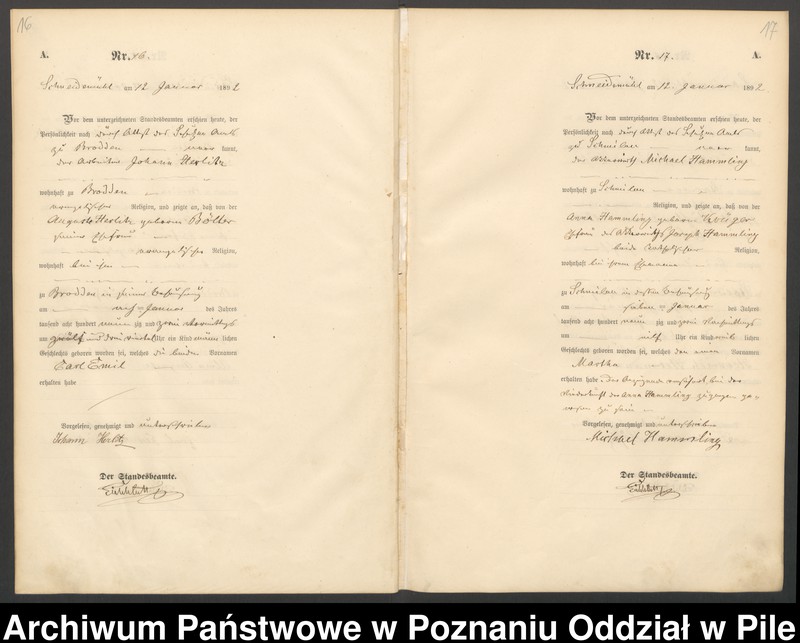 16
A.
Nr. 16.
Schneidemühl am 12 Januar 1892
Vor dem unterzeichneten Standesbeamten erschien heute, der
Persönlichkeit nach durch Attest des
zu Brodden kannt,
der Arbeiter Johann Herlitz
wohnhaft zu Brodden
evangelischer Religion, und zeigte an, daß von der
Auguste Herlitz geborene
seiner Ehefrau
evangelischer Religion,
wohnhaft bei ihm
zu Brodden in seiner Behausung
am Januar des Jahres
tausend acht hundert neunzig und zwei Vormittags
um und drei viertel Uhr ein Kind männlichen
Geschlechts geboren worden sei, welches die beiden Vornamen
Carl Emil
erhalten habe
Vorgelesen, genehmigt und unterschrieben
Johann Herlitz
Der Standesbeamte.
17
Nr. 17.
A.
Schneidemühl am 12 Januar 1892
Vor dem unterzeichneten Standesbeamten erschien heute, der
Persönlichkeit nach durch Attest des
zu kannt,
der Michael Hammling
wohnhaft zu
Religion, und zeigte an, daß von der
Anna Hammling geborene Krüger
Ehefrau des Joseph Hammling
beide katholischer Religion,
wohnhaft bei ihrem Ehemanne
zu in dessen Behausung
am sieben Januar des Jahres
tausend acht hundert neunzig und zwei Nachmittags
um Uhr ein Kind weiblichen
Geschlechts geboren worden sei, welches den einen Vornamen
Martha
erhalten habe. Der Anzeigende versichert bei der
Niederkunft der Anna Hammling zugegen ge-
wesen zu sein
Vorgelesen, genehmigt und unterschrieben
Michael Hammling
Der Standesbeamte.
Archiwum Państwowe w Poznaniu Oddział w Pile